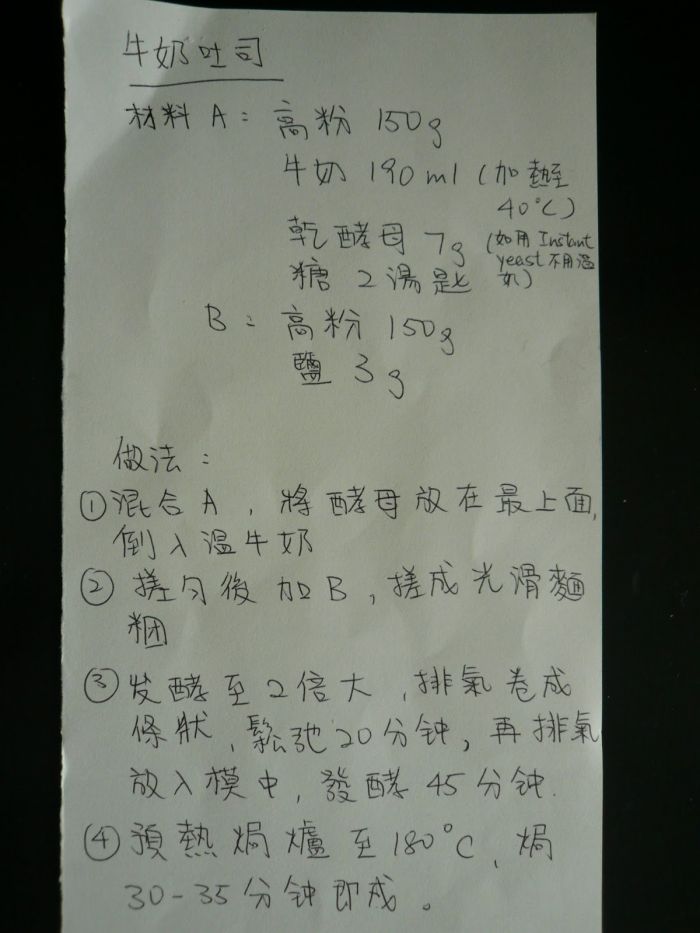 牛奶吐司
材料 A: 高粉 150g
牛奶 190 ml (加熱至
40°C)
乾酵母 7g (如用 Instant
yeast 不用溫
奶)
糖 2 湯匙
B: 高粉 150g
鹽 3g
做法:
① 混合 A, 將酵母放在最上面,
倒入溫牛奶
② 搓勻後加 B, 搓成光滑麵
糰
③ 发酵至2倍大, 排氣卷成
條狀, 鬆弛20分钟, 再排氣
放入模中, 發酵 45分钟.
④ 預熱焗爐至180°C, 焗
30-35分钟即成。